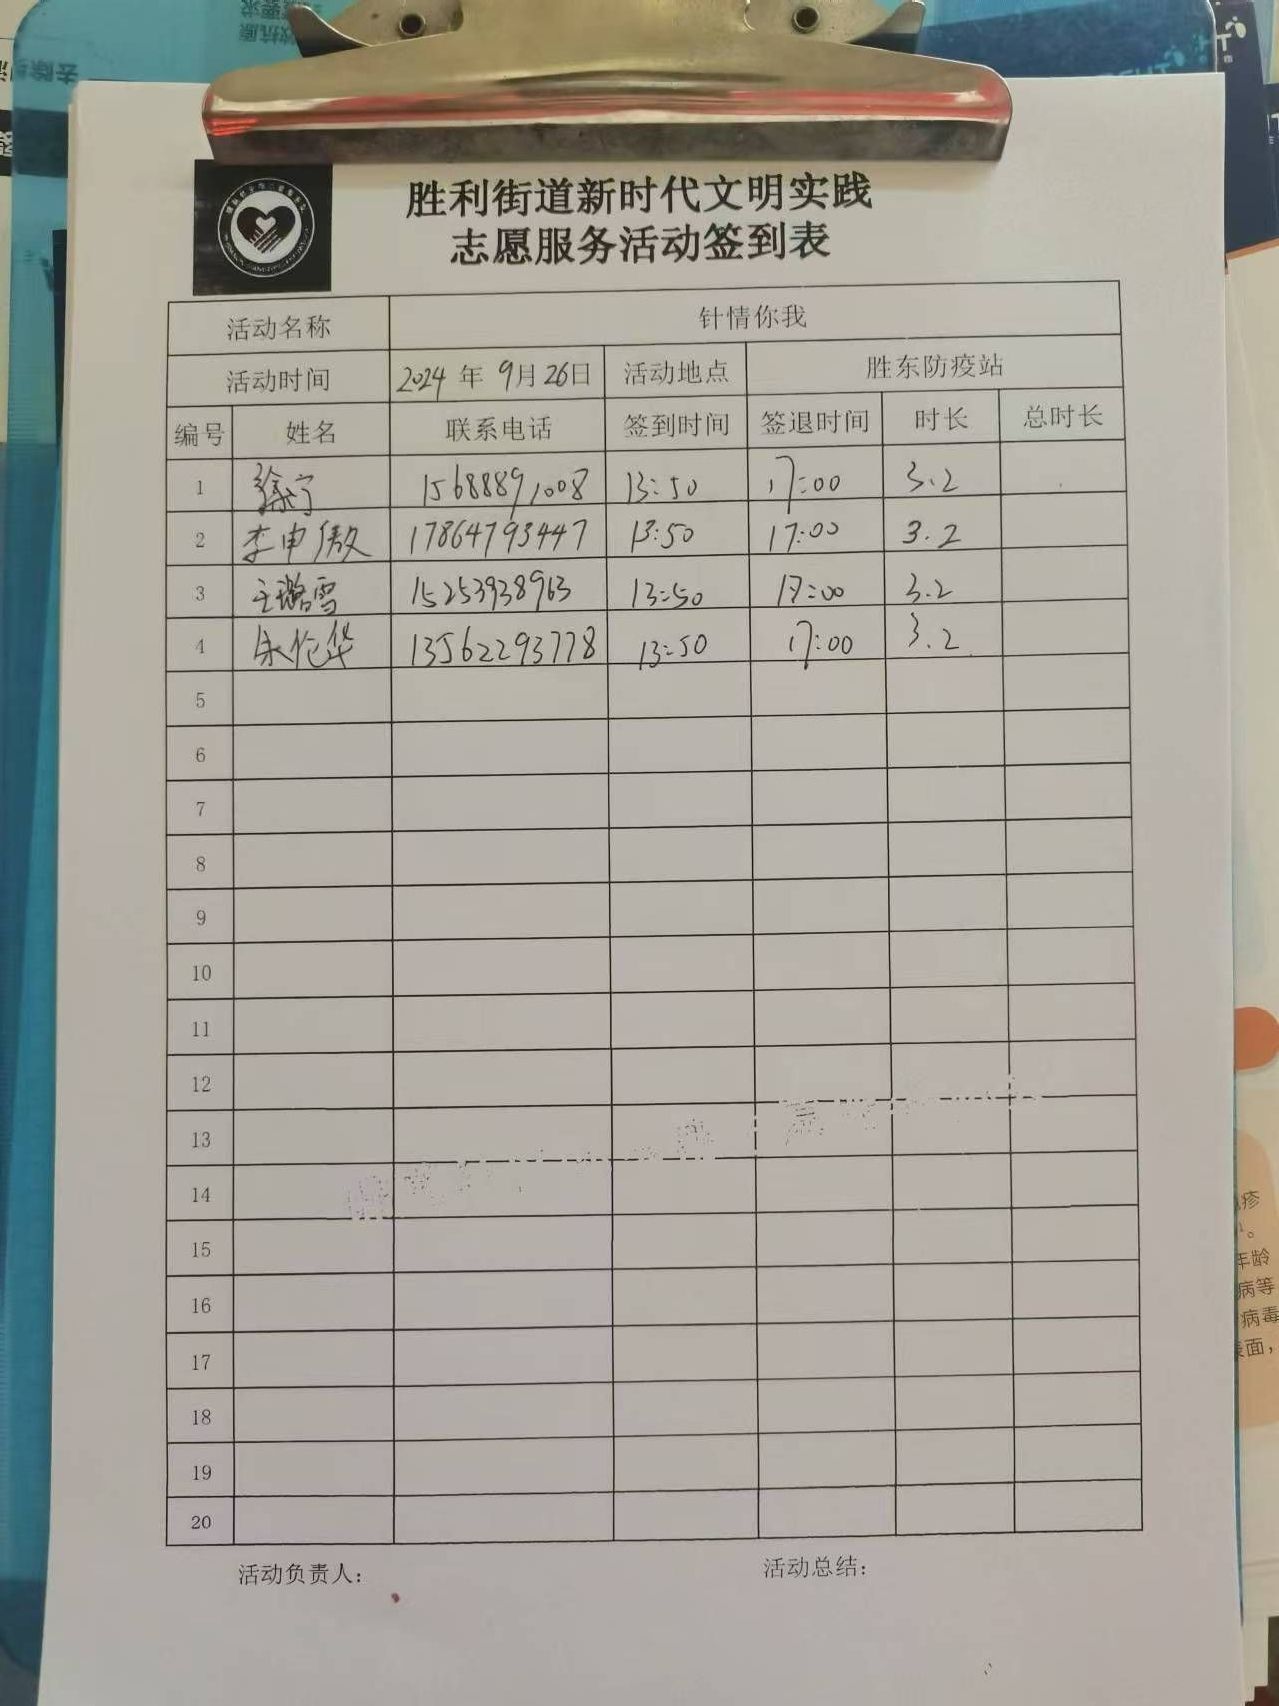 胜利街道新时代文明实践
志愿服务活动签到表
活动名称 针情你我
活动时间 2024 年 9月26日 活动地点 胜东防疫站
编号 姓名 联系电话 签到时间 签退时间 时长 总时长
1 徐宁 15688891008 13:50 17:00 3.2
2 李申傲 17864793447 13:50 17:00 3.2
3 王璐雪 15253938963 13:50 17:00 3.2
4 13562293778 13:50 17:00 3.2
5
6
7
8
9
10
11
12
13
14
15
16
17
18
19
20
活动负责人： 活动总结：
疹
年龄
病等
病毒
面，